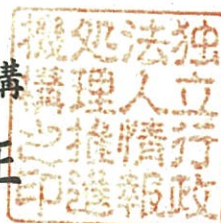 独立行政
法人情報
処理推進
機構之印